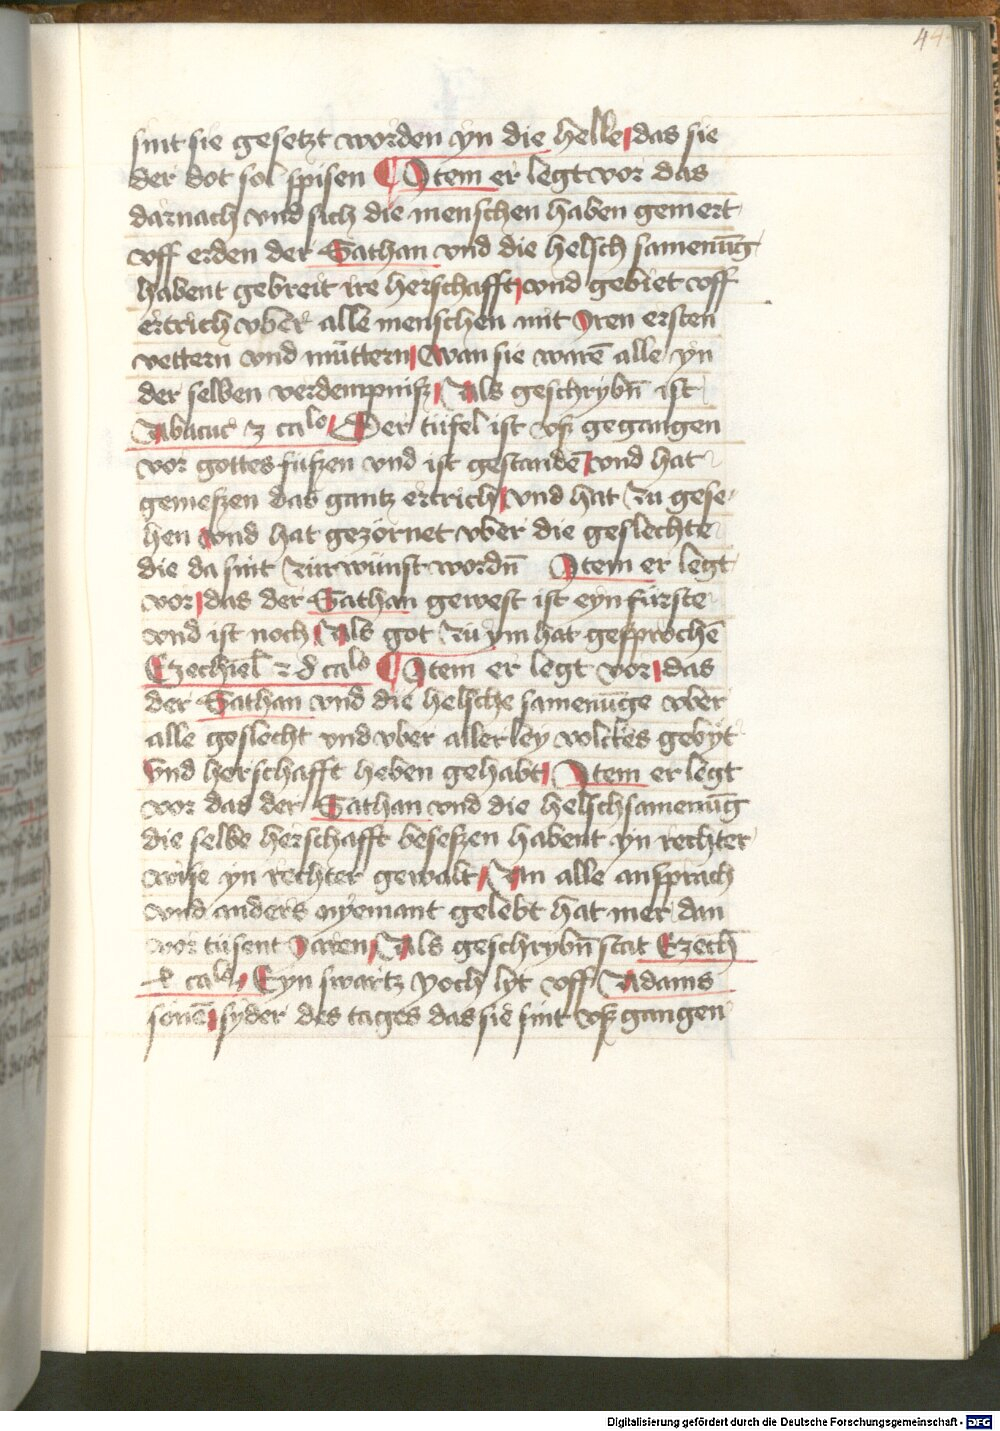 44
sint sie gesetzt worden yn die helle das sie
der dot sol spisen Item er legt vor das
darnach vnd sich die menschen haben gemert
vff erden der Sathan vnd die helsch samenūg
habent gebreit ire herschafft vnd gebiet vff
ertrich vber alle menschen mit Iren ersten
vettern vnd müttern wan sie warē alle yn
der selben verdempnisz Als geschrybn̄ ist
Abacuc 3 calo Der tüfel ist vsz gegangen
vor gottes füszen vnd ist gestandē vnd hat
gemeszen das gantz ertrich vnd hat zu gese
hen vnd hat gezörnet vber die geslechte
die da sint zürwünst wordn̄ Item er legt
vor das der Sathan gewest ist eyn fürste
vnd ist noch Als got zu ym hat gesprochē
Ezechiel calo Item er legt vor das
der Sathan vnd die helsche samenūge vber
alle geslecht vnd vber allerley volckes gebyt
vnd herschafft heben gehabt Item er legt
vor das der Sathan vnd die helschsamenūg
die selbe herschafft beseszen habent yn rechter
wise yn rechter gewalt An alle ansprach
vnd anders nyemant gelebt hat mer dan
vor tüsent Jaren Als geschrybn̄ stat Ezech
calo Eyn swartz yoch lyt vff Adams
sönē syder des tages das sie sint vsz gangen
Digitalisierung gefördert durch die Deutsche Forschungsgemeinschaft - DFG